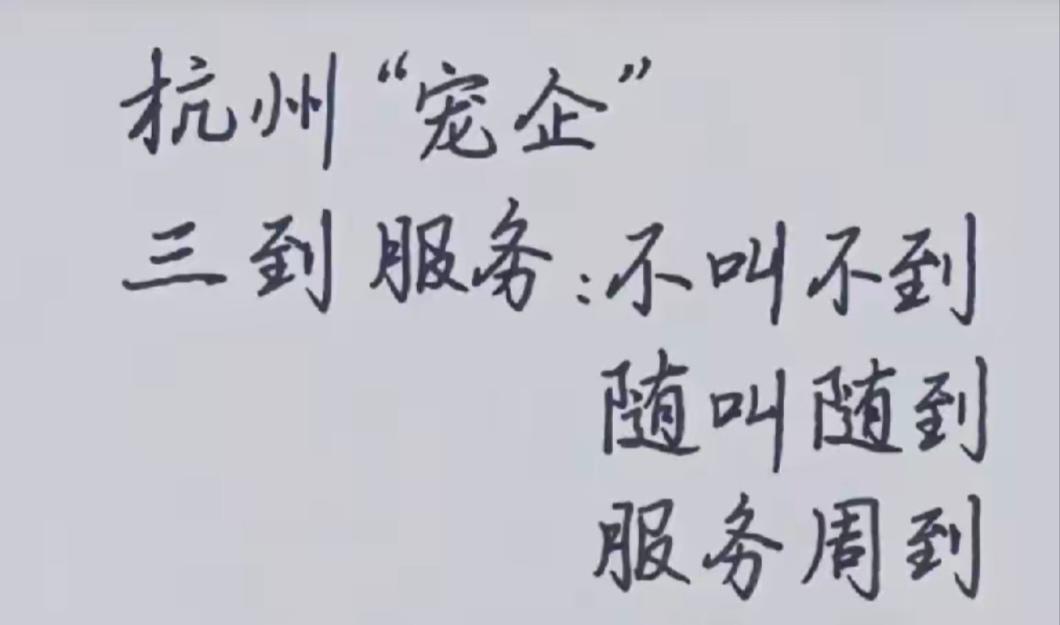 杭州“宠企”
三到服务:不叫不到
随叫随到
服务周到